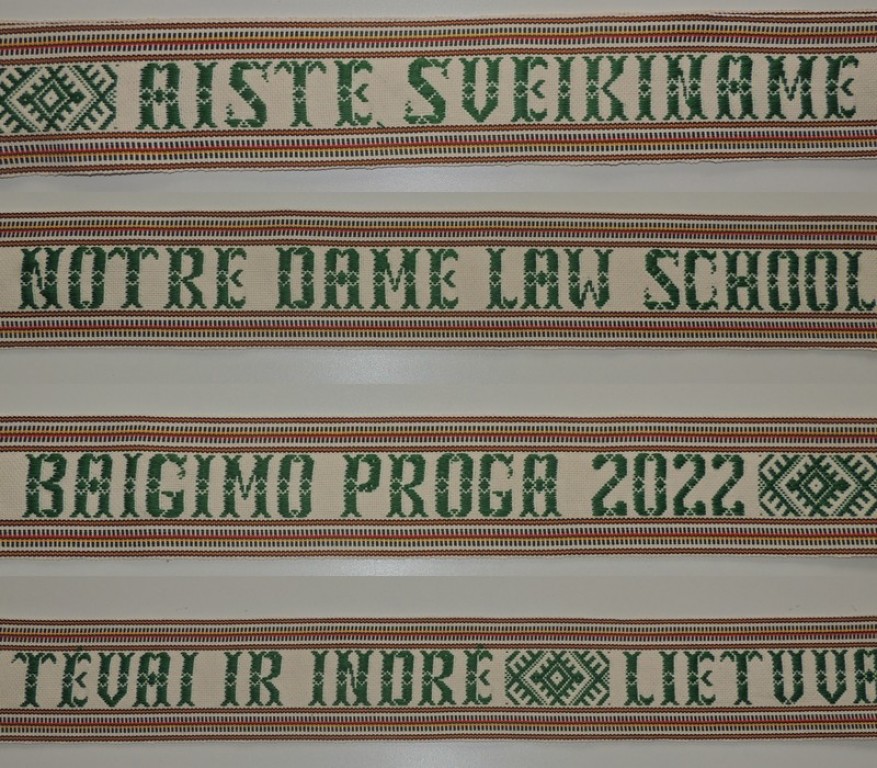 AISTE, SVEIKINAME
NOTRE DAME LAW SCHOOL
BAIGIMO PROGA 2022
TĖVAI IR INDRĖ LIETUVA